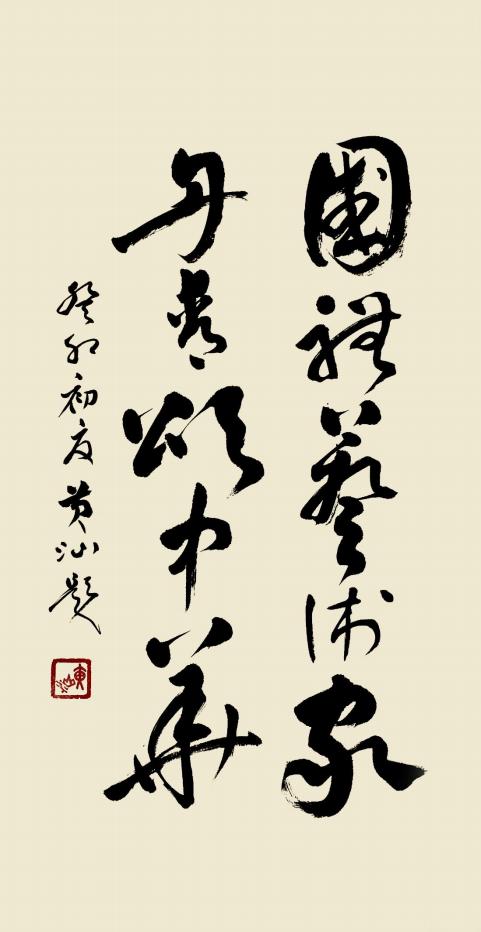 國礼藝术家
丹青頌中華
癸卯初夏黄汕題